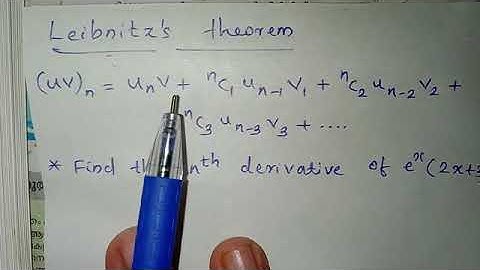 Leibnitz's theorem
(uv)ₙ = uₙv + ⁿC₁ uₙ₋₁ v₁ + ⁿC₂ uₙ₋₂ v₂ +
ⁿC₃ uₙ₋₃ v₃ + ....
* Find the nᵗʰ derivative of eˣ(2x+3